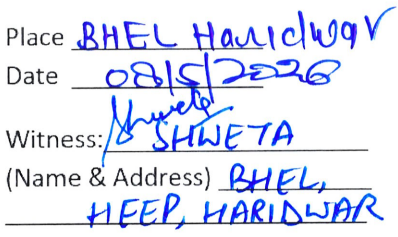 Place BHEL Haridwar
Date 08/5/2026
Shweta
Witness: SHWETA
(Name & Address) BHEL,
HEEP, HARIDWAR